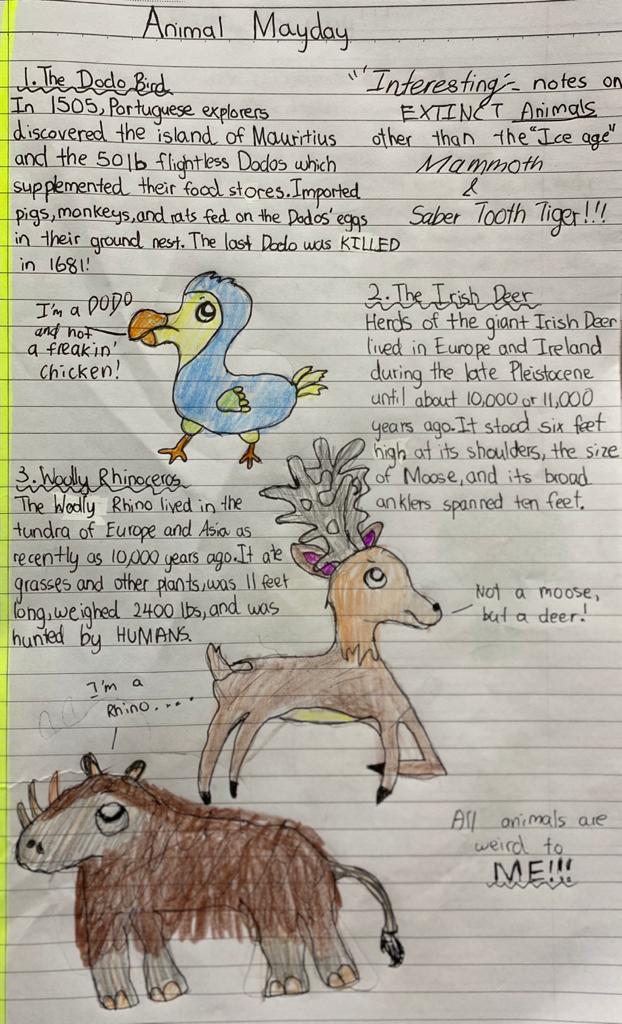 Animal Mayday
1. The Dodo Bird
In 1505, Portuguese explorers
discovered the island of Mauritius
and the 50lb flightless Dodos which
supplemented their food stores. Imported
pigs, monkeys, and rats fed on the Dodos' eggs
in their ground nest. The last Dodo was KILLED
in 1681!
"Interesting" - notes on
EXTINCT Animals
other than the "Ice age"
Mammoth
&
Saber Tooth Tiger!!!
I'm a DODO
and not
a freakin'
chicken!
2. The Irish Deer
Herds of the giant Irish Deer
lived in Europe and Ireland
during the late Pleistocene
until about 10,000 or 11,000
years ago. It stood six feet
high at its shoulders, the size
of Moose, and its broad
anklers spanned ten feet.
3. Woolly Rhinoceros
The Woolly Rhino lived in the
tundra of Europe and Asia as
recently as 10,000 years ago. It ate
grasses and other plants, was 11 feet
long, weighed 2400 lbs, and was
hunted by HUMANS.
Not a moose,
but a deer!
I'm a
Rhino....
All animals are
weird to
ME!!!